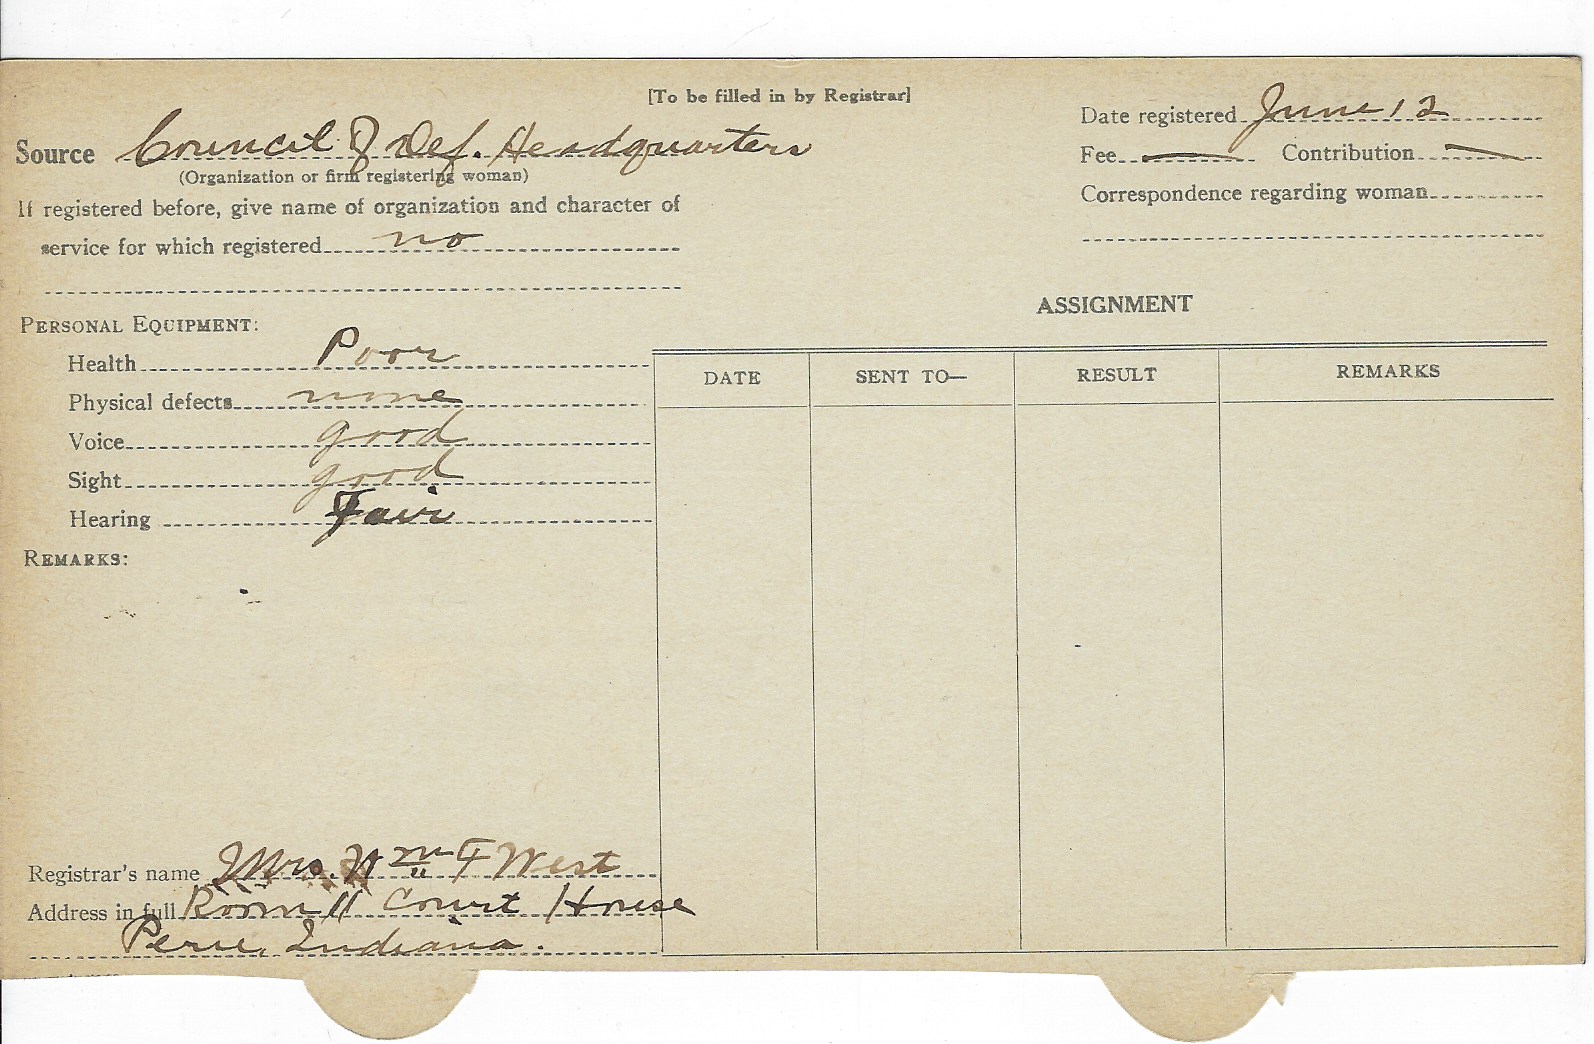 [To be filled in by Registrar]
Source Council of Def. Headquarters
(Organization or firm registering woman)
If registered before, give name of organization and character of
service for which registered no
Date registered June 12
Fee Contribution
Correspondence regarding woman
PERSONAL EQUIPMENT:
Health Poor
Physical defects none
Voice good
Sight good
Hearing Fair
REMARKS:
ASSIGNMENT
DATE SENT TO— RESULT REMARKS
Registrar's name Mrs. Wm F West
Address in full Room 11 Court House
Peru, Indiana.